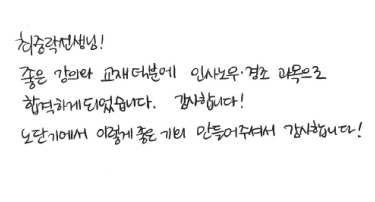 최중락선생님!
좋은 강의와 교재덕분에 인사노무·경조 과목으로
합격하게되었습니다. 감사합니다!
노단기에서 이렇게 좋은 기회 만들어주셔서 감사합니다!